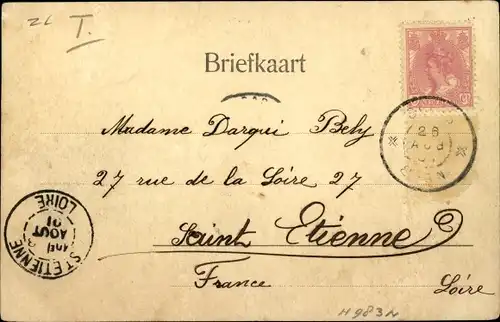 T.
Briefkaart
Madame Darqui Bely
27 rue de la Loire 27
Saint Etienne
France
Loire
28
AUG
ST ETIENNE
LOIRE
AOUT
01
H983N